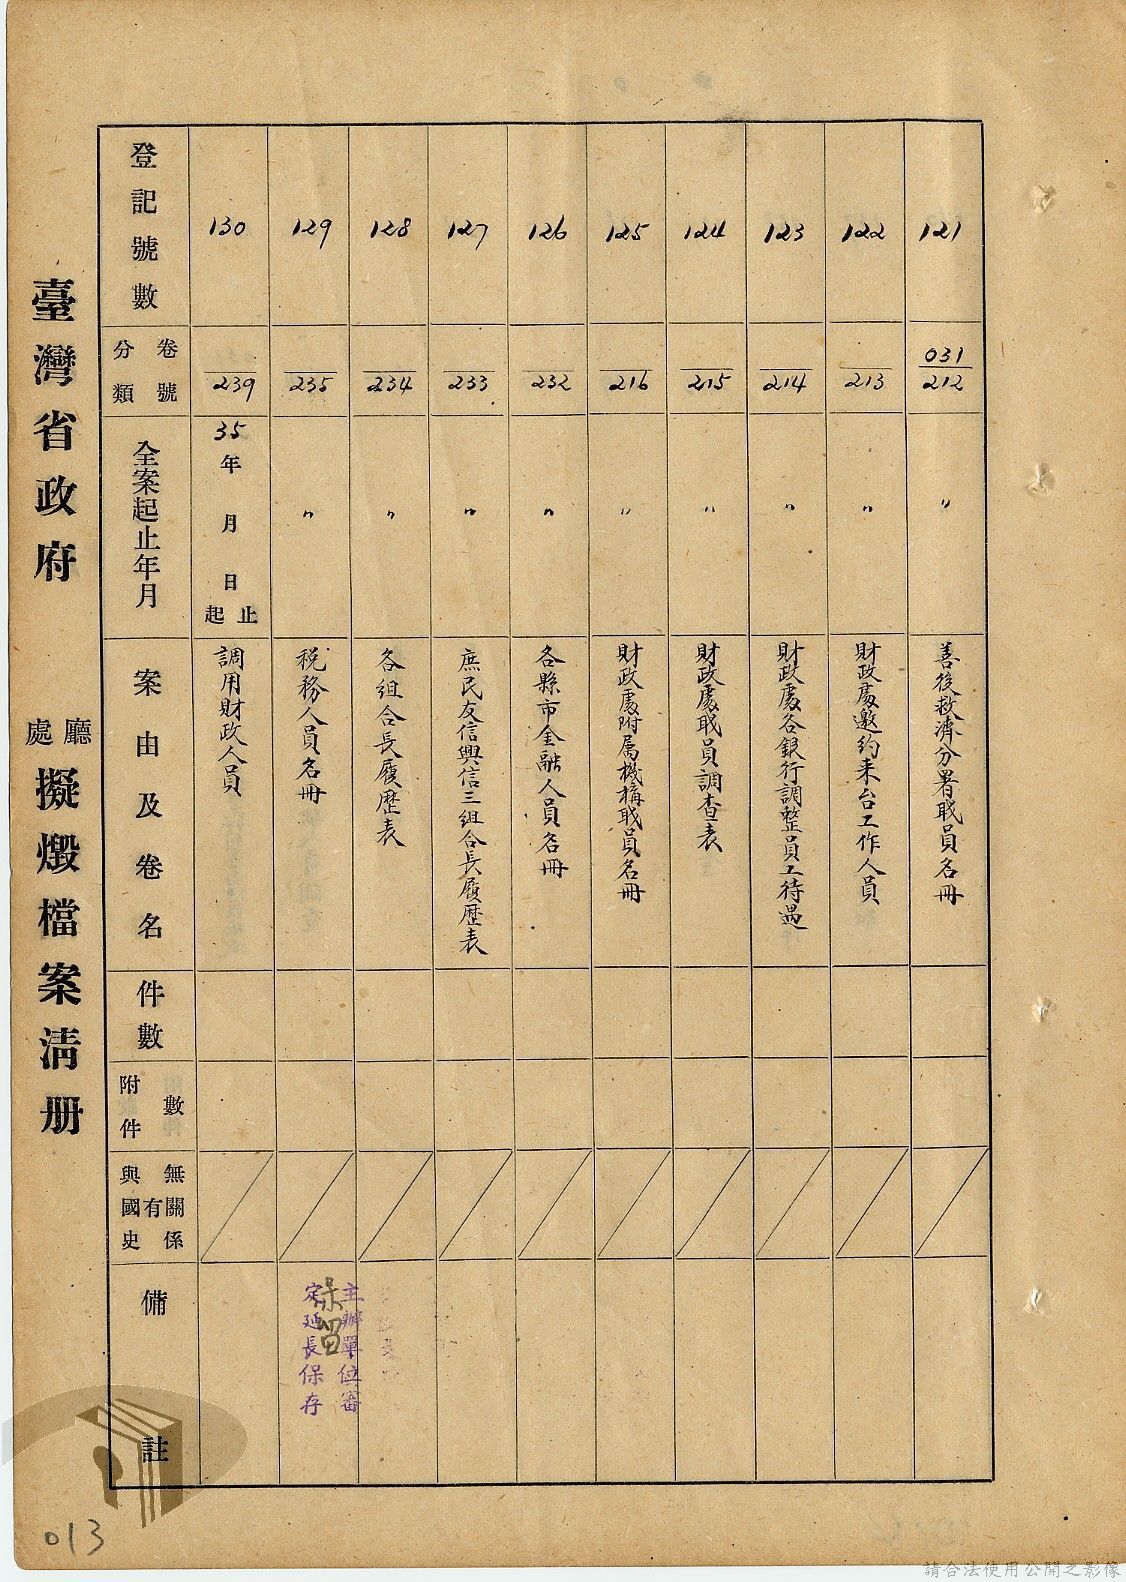 臺灣省政府 廳處 擬燬檔案清册
登記號數
卷號
分類
全案起止年月
案由及卷名
件數
附件數
與國史有無關係
備註
130
239
35年 月 日起止
調用財政人員
129
235
〃
税務人員名冊
保留
主辦單位審
定延長保存
128
234
〃
各組合長履歷表
127
233
〃
庶民友信興信三組合長履歷表
126
232
〃
各縣市金融人員名冊
125
216
〃
財政處附属機構職員名冊
124
215
〃
財政處職員調查表
123
214
〃
財政處各銀行調整員工待遇
122
213
〃
財政處邀約来台工作人員
121
031
212
〃
善後救濟分署職員名冊
013
請合法使用公開之影像